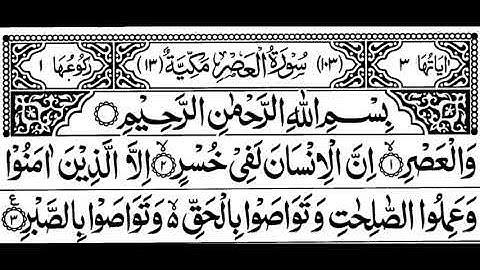 اٰيَاتُهَا ٣ (١٠٣) سُوْرَةُ الْعَصْرِ مَكِّيَّةٌ (١٣) رُكُوْعُهَا ١
بِسْمِ اللّٰهِ الرَّحْمٰنِ الرَّحِيْمِ
وَالْعَصْرِ ۙ‏﴿١﴾ اِنَّ الْاِنْسَانَ لَفِىْ خُسْرٍ ۙ‏﴿٢﴾ اِلَّا الَّذِيْنَ اٰمَنُوْا
وَعَمِلُوا الصّٰلِحٰتِ وَتَوَاصَوْا بِالْحَقِّ ۙ۬ وَتَوَاصَوْا بِالصَّبْرِ ‏﴿٣﴾ ع